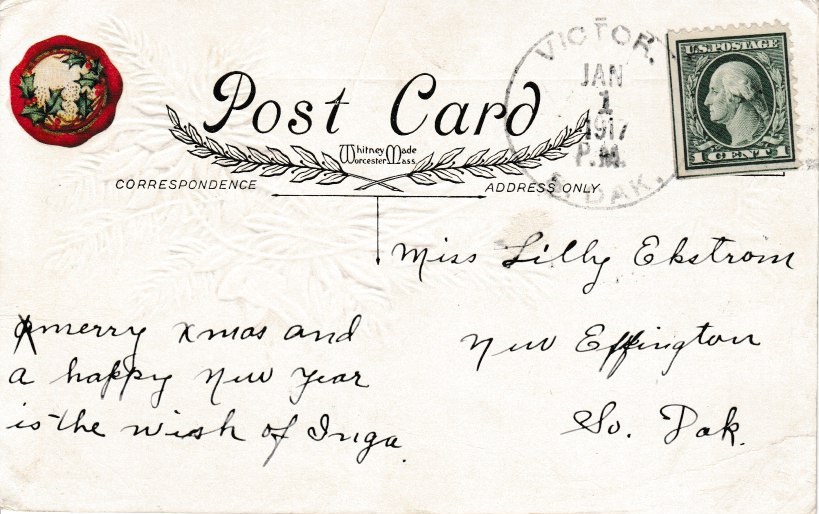 Post Card
Whitney Made
Worcester Mass.
CORRESPONDENCE
ADDRESS ONLY
VICTOR.
JAN
1
1917
P.M.
S. DAK.
U.S. POSTAGE
1 CENT 1
Miss Lilly Ekstrom
New Effington
So. Dak.
A merry xmas and
a happy New Year
is the wish of Inga.